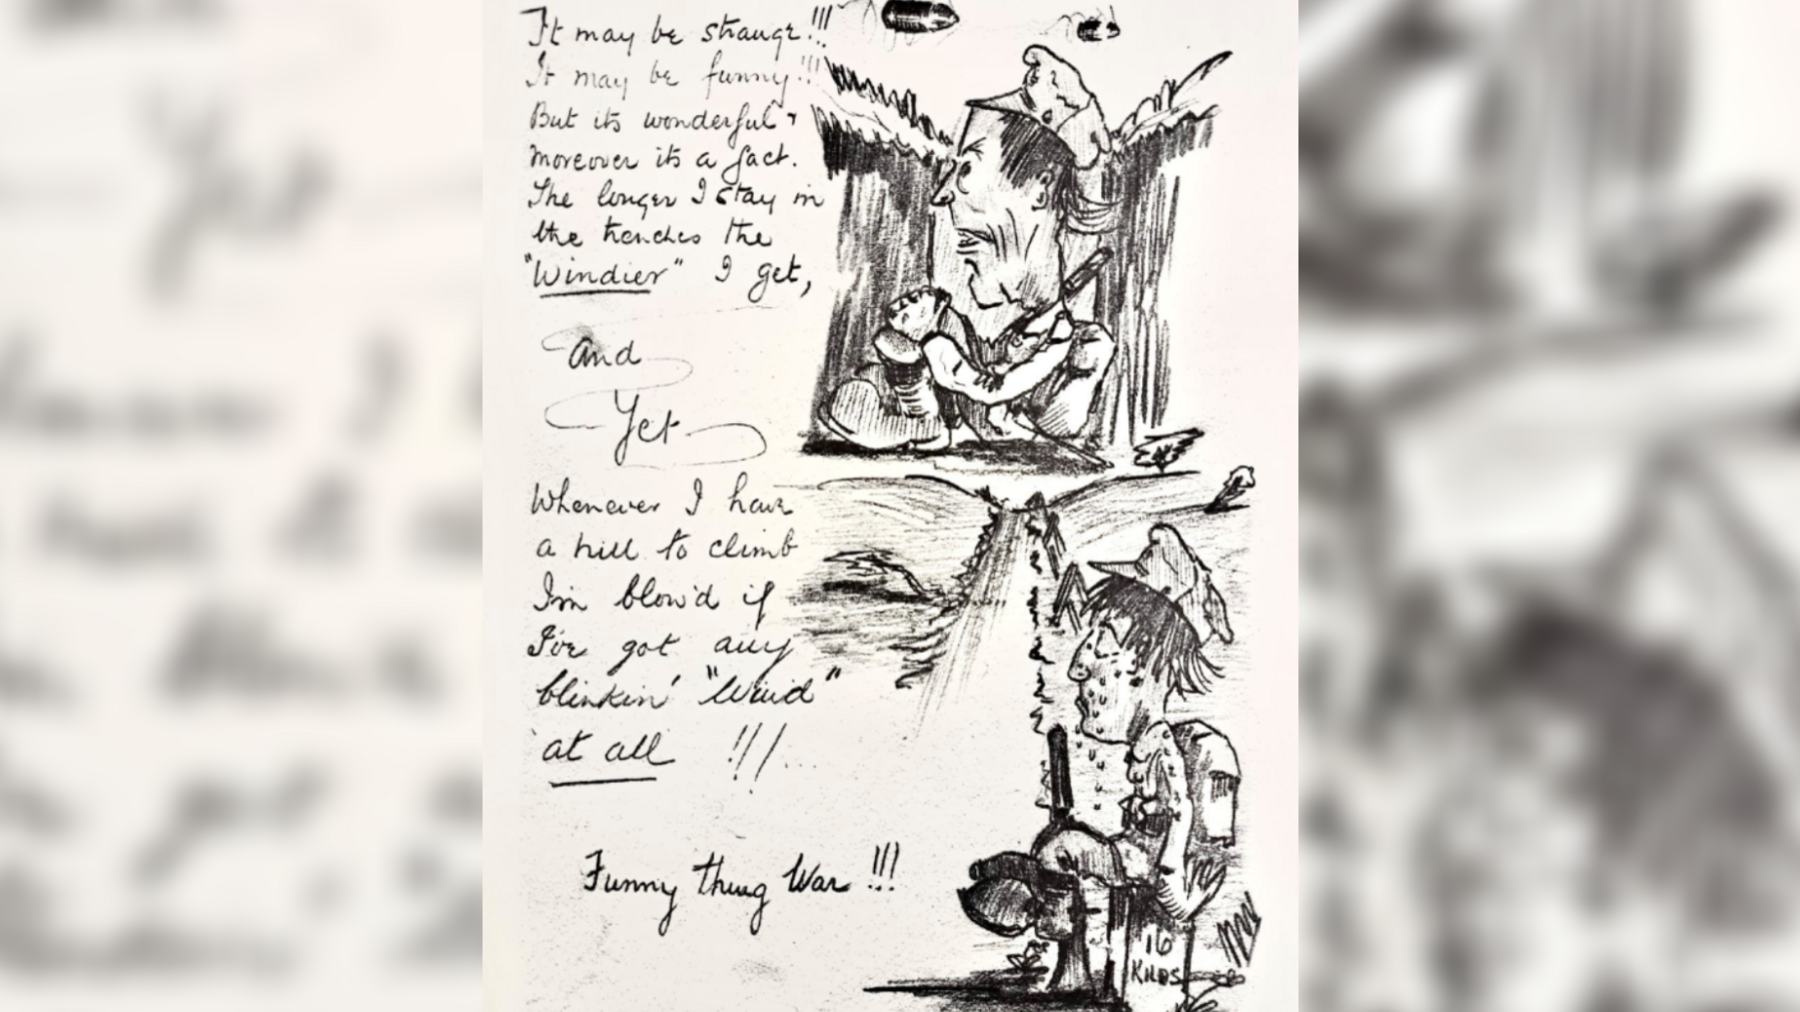 It may be strange!!!
It may be funny!!!
But its wonderful &
moreover its a fact.
The longer I stay in
the trenches the
"Windier" I get,
and
Yet
Whenever I have
a hill to climb
I'm blow'd if
I've got any
blinkin' "Wind"
at all !!!...
Funny thing War !!!
16
KILOS